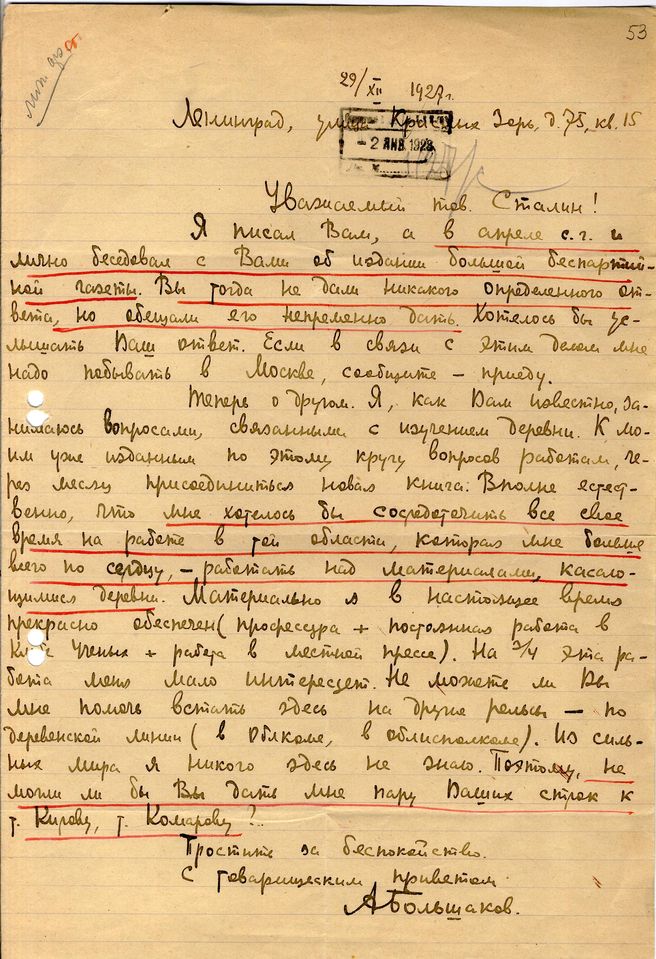 53
29/XII 1927г.
Ленинград, улица Красных Зорь, д. 75, кв. 15
- 2 ЯНВ 1928
Уважаемый тов. Сталин!
Я писал Вам, а в апреле с.г. и
лично беседовал с Вами об издании большой беспартий-
ной газеты. Вы тогда не дали никакого определенного от-
вета, но обещали его непременно дать. Хотелось бы ус-
лышать Ваш ответ. Если в связи с этим делом мне
надо побывать в Москве, сообщите – приеду.
Теперь о другом. Я, как Вам известно, за-
нимаюсь вопросами, связанными с изучением деревни. К мо-
им уже изданным по этому кругу вопросов работам, че-
рез месяц присоединиться новая книга. Вполне естест-
венно, что мне хотелось бы сосредоточить все свое
время на работе в той области, которая мне больше
всего по сердцу, – работать над материалами, касаю-
щимися деревни. Материально я в настоящее время
прекрасно обеспечен (профессура + постоянная работа в
Клубе Ученых + работа в местной прессе). На 3/4 эта ра-
бота меня мало интересует. Не можете ли Вы
мне помочь встать здесь на другие рельсы – по
деревенской линии (в Обкоме, в облисполкоме). Из силь-
ных мира я никого здесь не знаю. Поэтому, не
могли ли бы Вы дать мне пару Ваших строк к
т. Кирову, т. Комарову?..
Простите за беспокойство.
С товарищеским приветом
А Большаков.